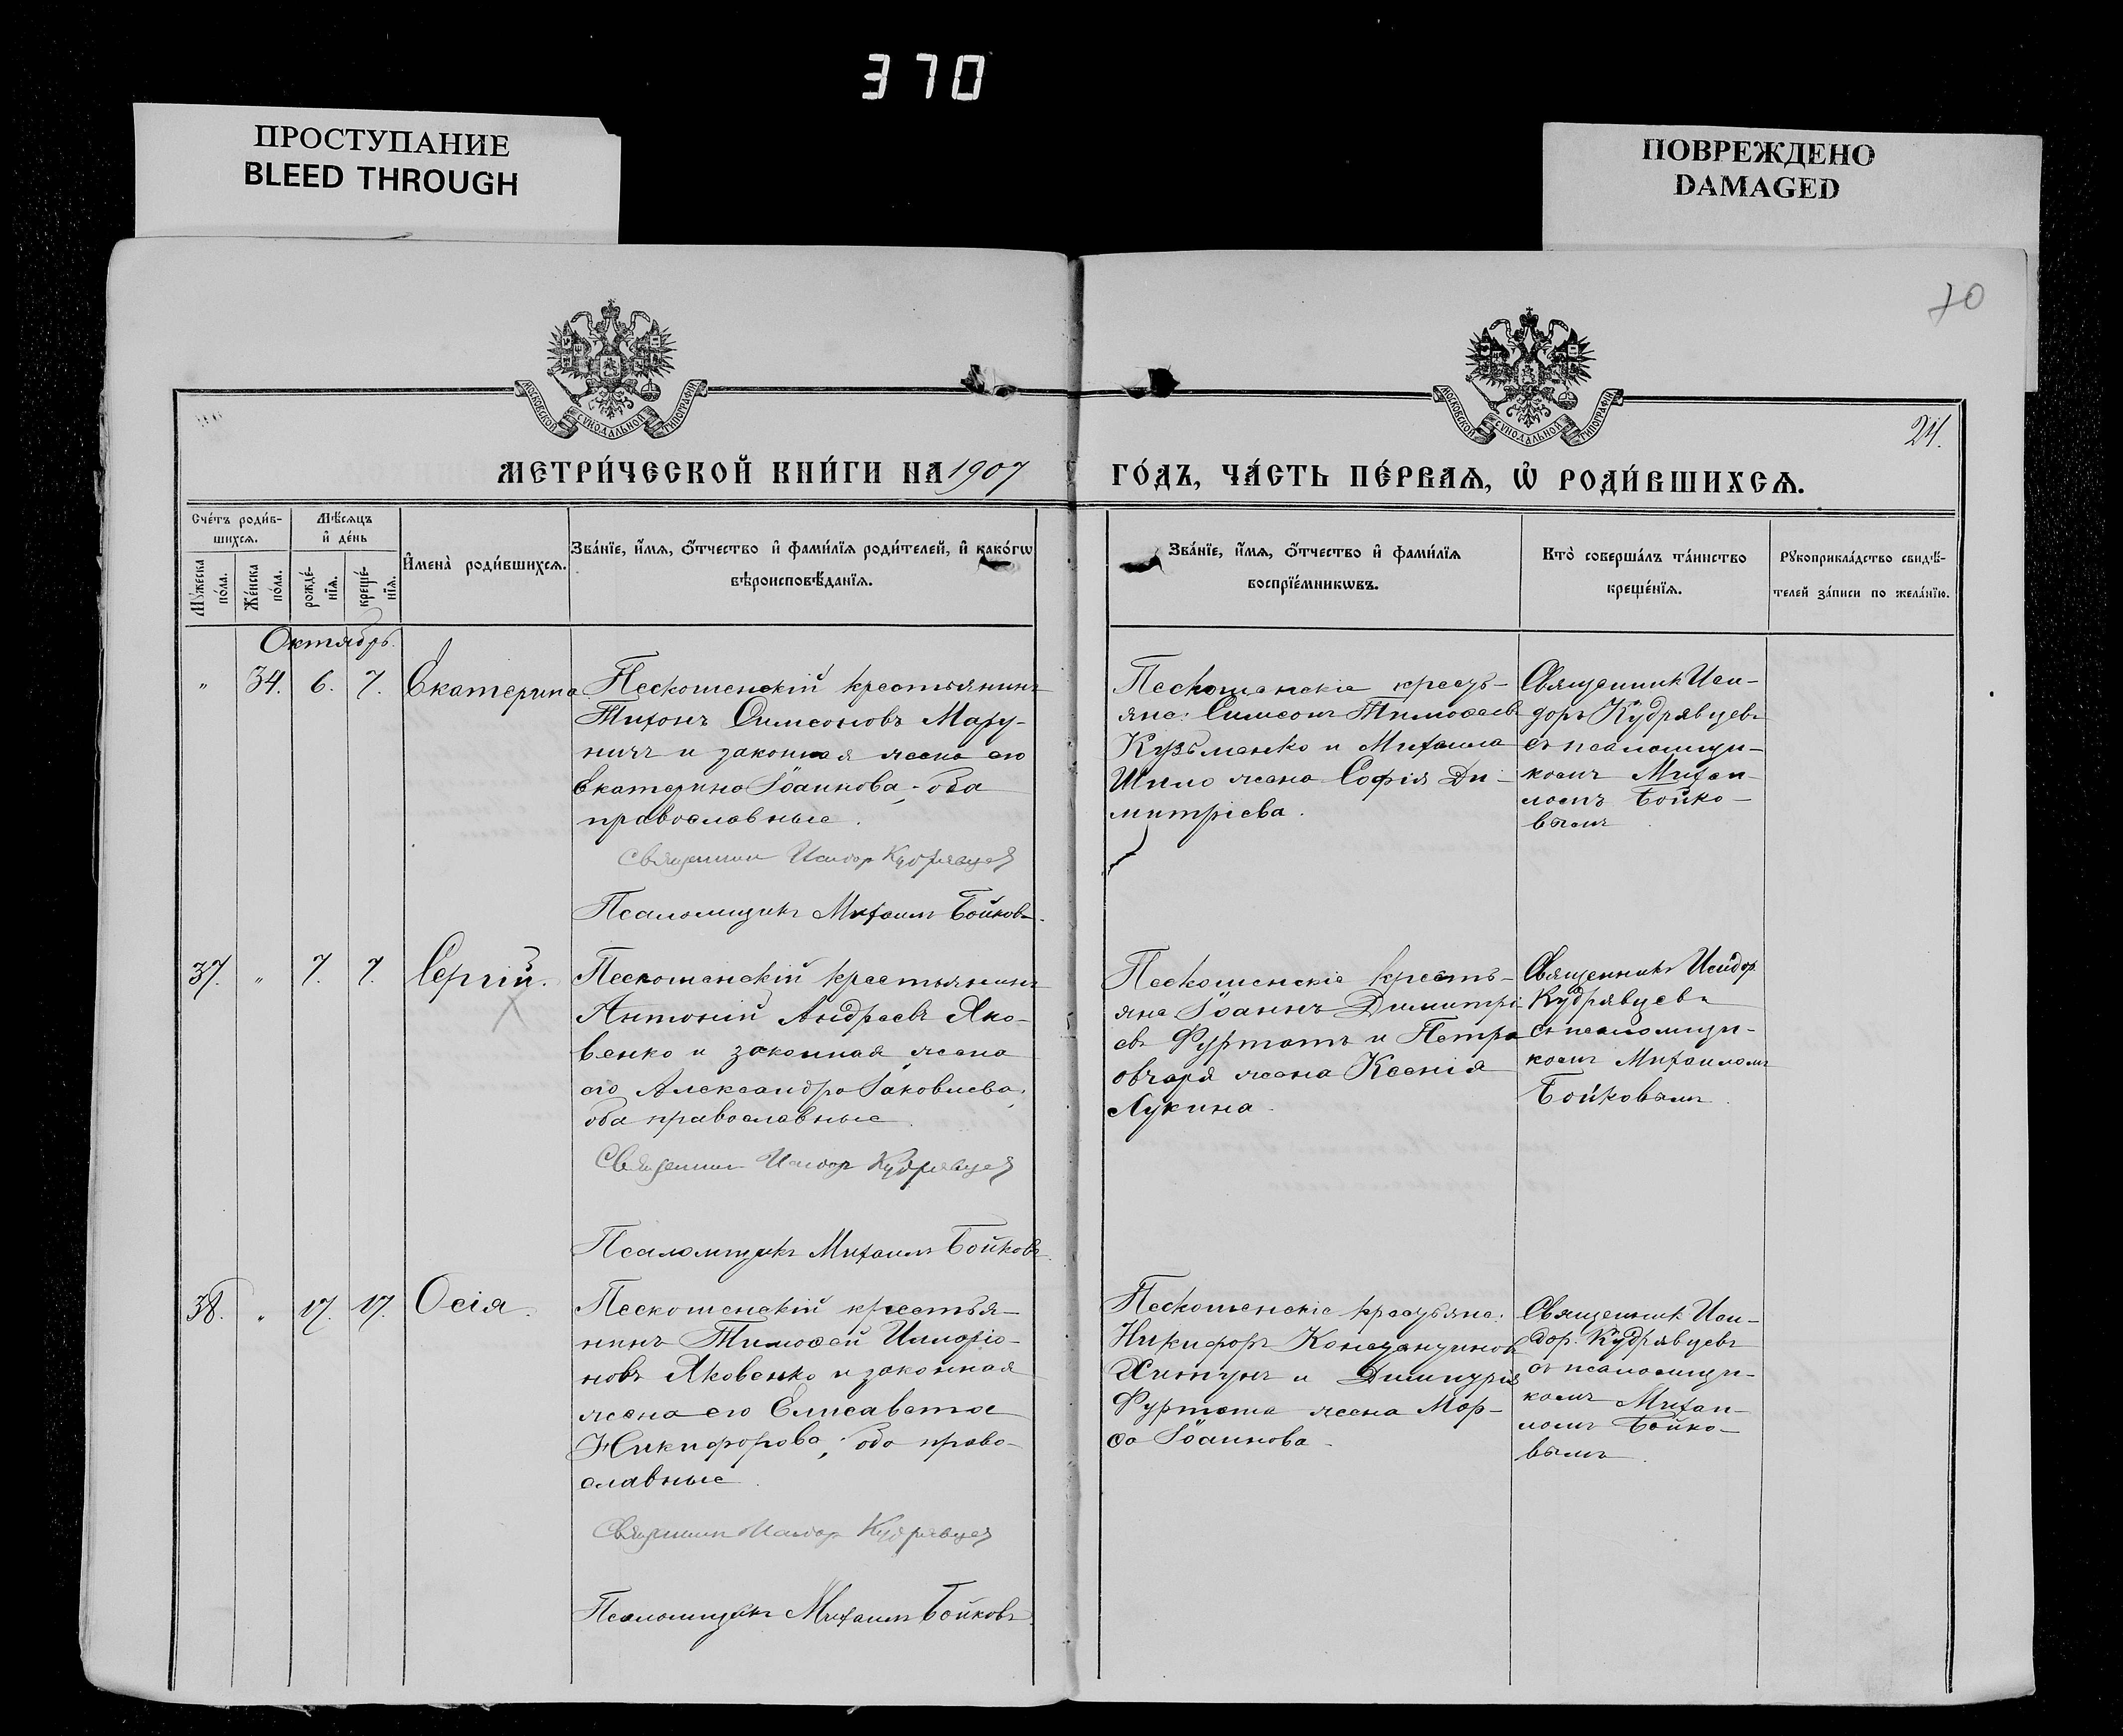 370
ПРОСТУПАНИЕ
BLEED THROUGH
ПОВРЕЖДЕНО
DAMAGED
70
МОСКОВСКОЙ СѴНОДАЛЬНОЙ ТИПОГРАФІИ
МОСКОВСКОЙ СѴНОДАЛЬНОЙ ТИПОГРАФІИ
24.
МЕТРИ́ЧЕСКОЙ КНИ́ГИ НА 1907
ГО́ДЪ, ЧА́СТЬ ПЕ́РВАѦ, Ѡ҆ РОДИ́ВШИХСѦ.
Сче́тъ роди́в-
шихсѧ.
Мѣ́сѧцъ
и҆ де́нь
Мꙋ́жеска
по́ла.
Же́нска
по́ла.
рожде́-
нїѧ.
креще́-
нїѧ.
И҆мена̀ роди́вшихсѧ.
Зва́нїе, и҆́мѧ, ѻ҆́тчество и҆ фами́лїѧ роди́телей, и҆ како́гѡ
вѣроисповѣ́данїѧ.
Зва́нїе, и҆́мѧ, ѻ҆́тчество и҆ фами́лїѧ
воспрїе́мникѡвъ.
Кто̀ соверша́лъ та́инство
креще́нїѧ.
Рꙋкоприкла́дство свидѣ́-
телей за́писи по жела́нїю.
Октябрь.
" 34. 6. 7. Екатерина
Пескошенскій крестьянинъ
Тихонъ Симеоновъ Мару-
ничъ и законная жена его
Екатерина Іоаннова, оба
православные.
Священник Исидор Кудрявцев
Псаломщикъ Михаилъ Бойковъ.
Пескошенскіе кресть-
яне: Симеонъ Тимоѳеевъ
Кузьменко и Михаила
Шило жена Софія Ди-
митріева.
Священникъ Иси-
доръ Кудрявцевъ
съ псаломщи-
комъ Михаи-
ломъ Бойко-
вымъ
37. " 7. 7. Сергій.
Пескошенскій крестьянинъ
Антоній Андреевъ Яко-
венко и законная жена
его Александра Іаковлева,
оба православные.
Священник Исидор Кудрявцев
Псаломщикъ Михаилъ Бойковъ.
Пескошенскіе кресть-
яне Іоаннъ Димитрі-
евъ Фуртатъ и Петра
овчаря жена Ксенія
Лукина.
Священникъ Исидоръ
Кудрявцевъ
съ псаломщи-
комъ Михаиломъ
Бойковымъ.
38. " 17. 17. Осія.
Пескошенскій крестья-
нинъ Тимоѳей Иларіо-
новъ Яковенко и законная
жена его Елисавета
Никифорова, оба право-
славные.
Священник Исидор Кудрявцев
Псаломщикъ Михаилъ Бойковъ.
Пескошенскіе крестьяне:
Никифоръ Константиновъ
и Димитрія
Фуртата жена Мар-
ѳа Іоаннова.
Священникъ Иси-
доръ Кудрявцевъ
съ псаломщи-
комъ Михаи-
ломъ Бойко-
вымъ.